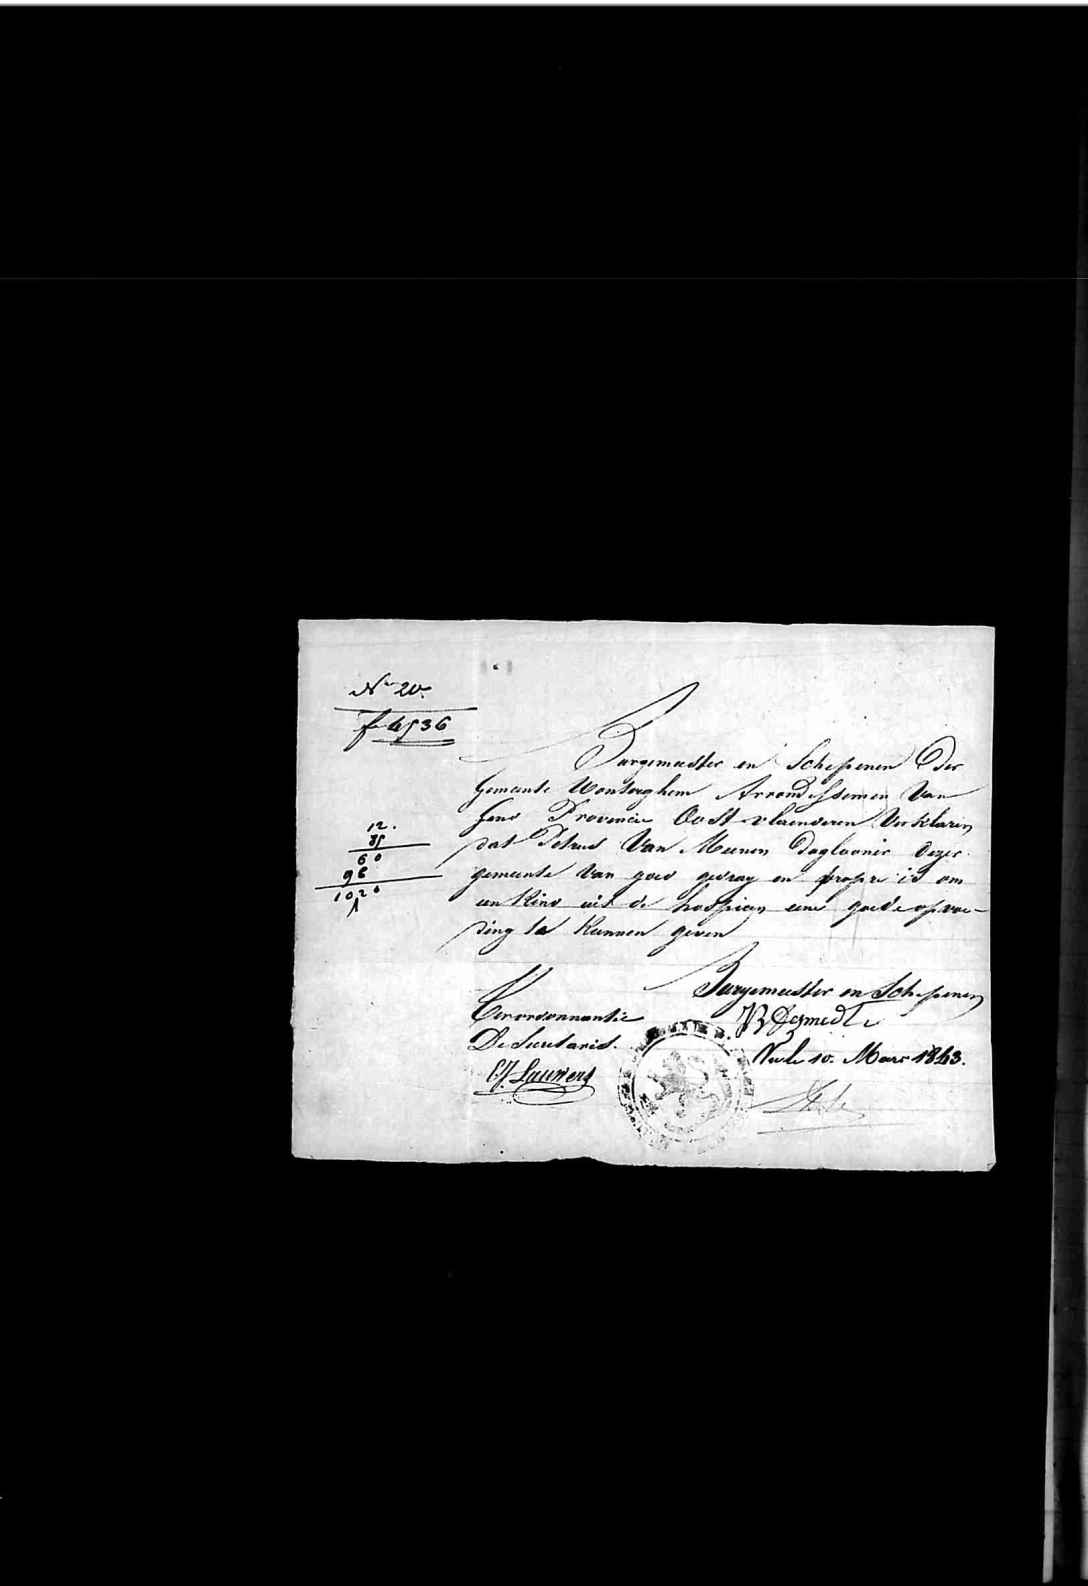 No 20.
f 4536
Burgemeester en Schepenen der
gemeente Wonterghem Arrondissemen Van
Gend Provincie Oost vlaenderen Verklaren
dat Petrus Van Meenen Daglooner dezer
gemeente Van goed gedrag en propr is om
een Kind uit de hospicen eene goede opvoe-
ding te Kunnen geven
12.
85
60
96
1020
1
Burgemeester en Schepenen
Ter ordonnantie
De Secretaris.
Vu le 10. Mars 1843.